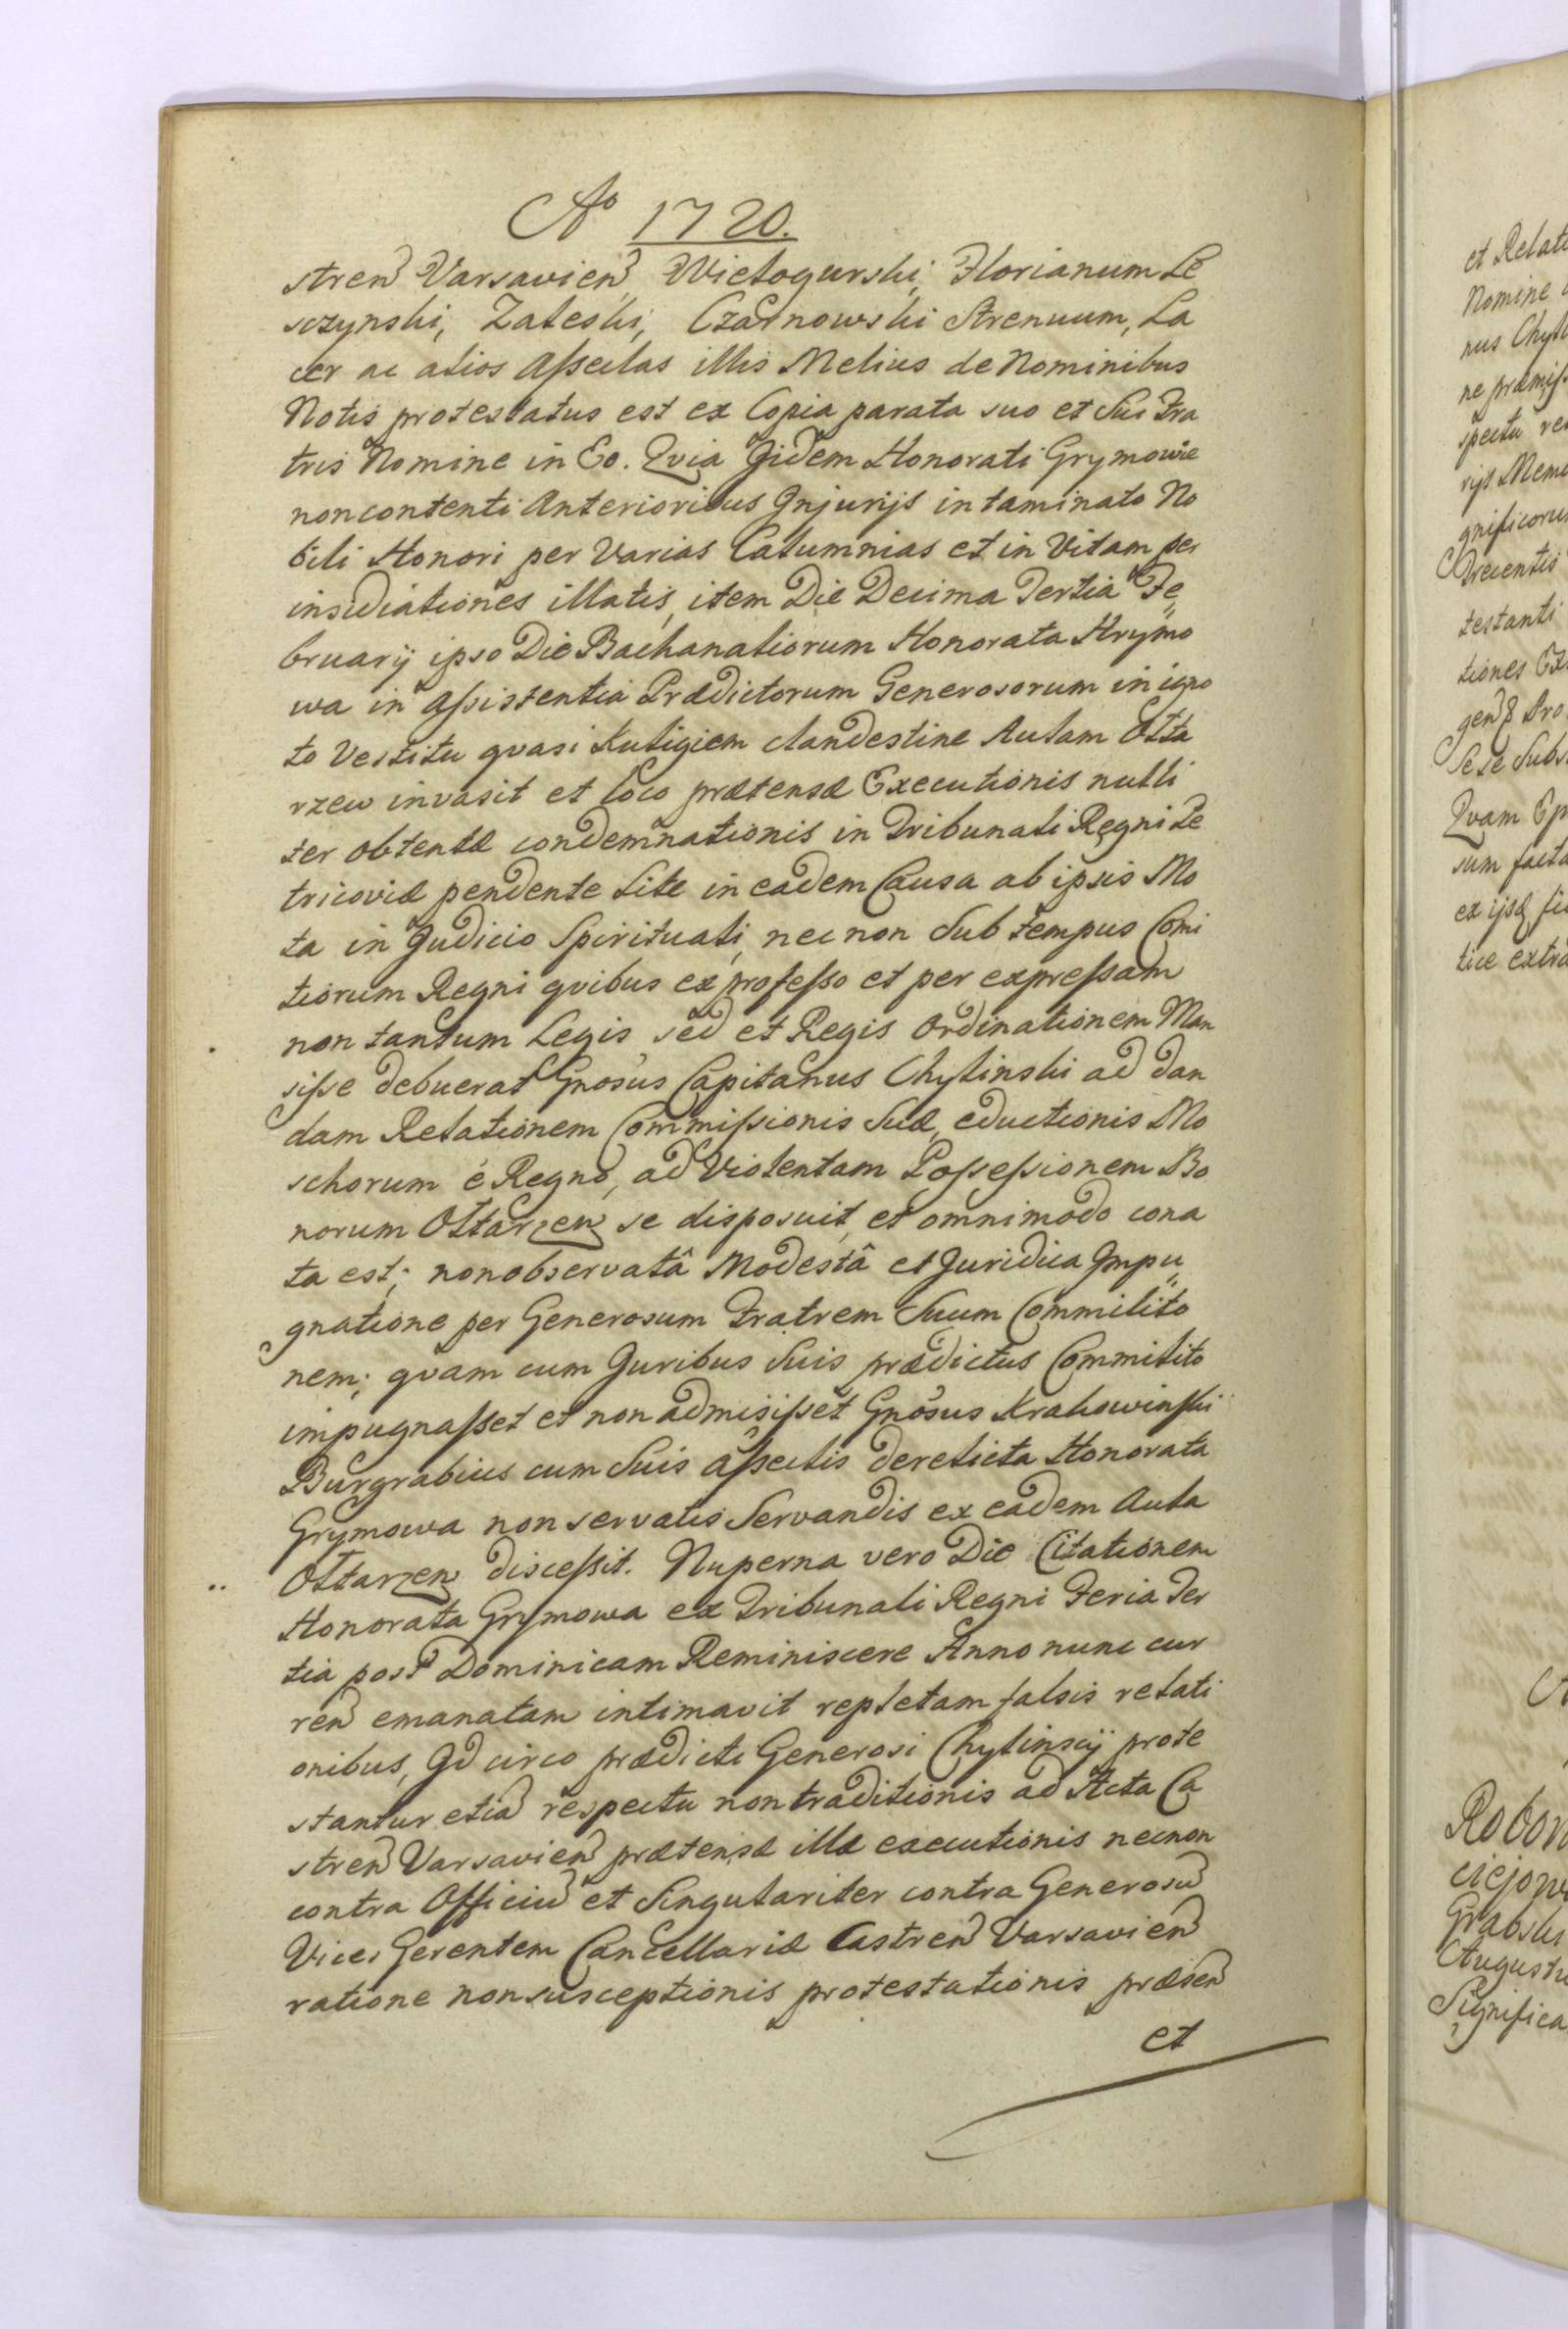 Ao 1720.
stren Varsavien, Wielogurski, Florianum Le
sczynski, Zaleski, Czarnowski Strenuum, La
cer ac alios Asseclas illis Melius de Nominibus
Notis protestatus est ex Copia parata suo et Sui Fra
tris Nomine in Eo. Qvia Iidem Honorati Grymowie
non contenti Anterioribus Injurijs intaminato No
bili Honori per Varias Calumnias et in Vitam per
insidiationes illatis, item Die Decima Tertia Fe„
bruarij ipso Die Bachanaliorum Honorata Krymo
wa in Assistentia Prædictorum Generosorum in igno
to Vestitu qvasi Kuligiem clandestine Aulam Ołta
rzew invasit et loco prætensæ Executionis nulli
ter obtentæ condemnationis in Tribunali Regni Pe
tricoviæ pendente Lite in eadem Causa ab ipsis Mo
ta in Judicio Spirituali, nec non Sub tempus Comi
tiorum Regni qvibus ex professo et per expressam
non tantum Legis sed et Regis Ordinationem Man
sisse debuerat Gnosus Capitanus Chylinski ad dan
dam Relationem Commissionis Suæ, eductionis Mo
schorum é Regno, ad Violentam Possessionem Bo
norum Ołtarzew se disposuit, et omnimodo cona
ta est; non observatâ Modestâ et Juridica Impu„
gnatione per Generosum Fratrem Suum Commilito
nem; qvam cum Juribus Suis prædictus Commilito
impugnasset et non admisisset Gnosus Krakowinski
Burgrabius cum Suis Asseclis derelicta Honorata
Grymowa non servatis Servandis ex eadem Aula
Ołtarzew discessit. Nuperna vero Die Citationem
Honorata Grymowa ex Tribunali Regni Feria Ter
tia post Dominicam Reminiscere Anno nunc cur
ren emanatam intimavit repletam falsis relati
onibus, Id circo prædicti Generosi Chylinscij prote
stantur etia respectu non traditionis ad Acta Ca
stren Varsavien prætensæ illæ executionis necnon
contra Officiu et Singulariter contra Generosu
Vices Gerentem Cancellariæ Castren Varsavien
ratione non susceptionis protestationis præsen
et
et Relati
Nomine
nus Chyli
ne præmiss
spectu re
rijs Memo
gnificoru
Trecentis
testanti
tiones Ex
gen Pro
Sese Subs
Qvam
sum facta
ex ijsq
tice extra
Robor
ciejow
Grabski
Augustu
Significa